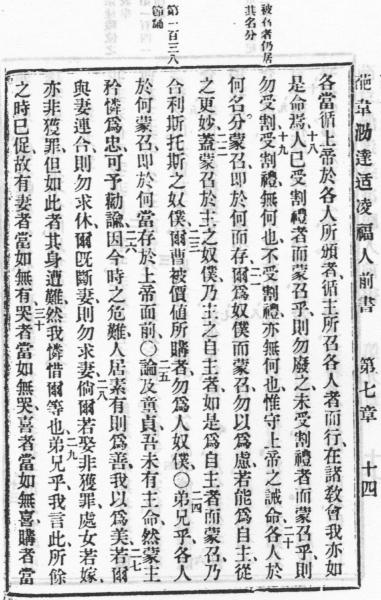 葩韋勒達适凌福人前書 第七章 十四
被召者仍居
其名分
各當循上帝於各人所頒者、循主所召各人者而行、在諸敎會我亦如
是命焉、十八人已受割禮者而蒙召乎、則勿廢之、未受割禮者而蒙召乎、則
勿受割、十九受割禮無何也、不受割禮亦無何也、惟守上帝之誡命、二十各人於
何名分蒙召、即於何而存、二一爾爲奴僕而蒙召、勿以爲慮、若能爲自主、從
之更妙、二二蓋蒙召於主之奴僕、乃主之自主者、如是爲自主者而蒙召、乃
合利斯托斯之奴僕、二三爾曹被價値所購者、勿爲人奴僕、二四〇弟兄乎、各人
第一百三八
節誦
於何蒙召、即於何當存於上帝面前、二五〇論及童貞、吾未有主命、然蒙主
矜憐爲忠、可予勸諭、二六因今時之危難、人居素有則爲善、我以爲美、二七若爾
與妻連合、則勿求休、爾旣斷妻、則勿求妻、二八倘爾若娶、非獲罪、處女若嫁、
亦非獲罪、但如此者其身遭難、然我憐惜爾等也、二九弟兄乎、我言此、所餘
之時已促、故有妻者、當如無有、三十哭者當如無哭、喜者當如無喜、購者當